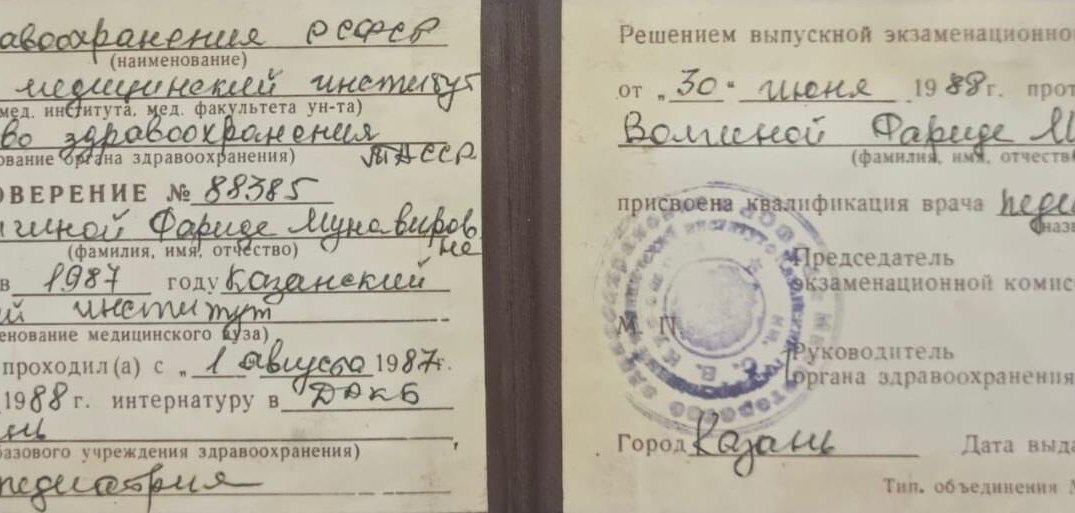 авоохранения РСФСР
(наименование)
медицинский институт
мед. института, мед. факультета ун-та)
во здравоохранения
ование органа здравоохранения) ТАССР
ОВЕРЕНИЕ № 88385
гиной Фариде Мунавировне
(фамилия, имя, отчество)
в 1987 году Казанский
ий институт
енование медицинского вуза)
проходил(а) с „ 1 августа 1987г.
1988 г. интернатуру в ДРКБ
нь
базового учреждения здравоохранения)
педиатрия
Решением выпускной экзаменационно
от „30“ июня 1988г. прот
Фариде Му
(фамилия, имя, отчеств
присвоена квалификация врача педи
(назв
Председатель
экзаменационной комис
М. П.
Руководитель
органа здравоохранения
Город Казань Дата выда
Тип. объединения